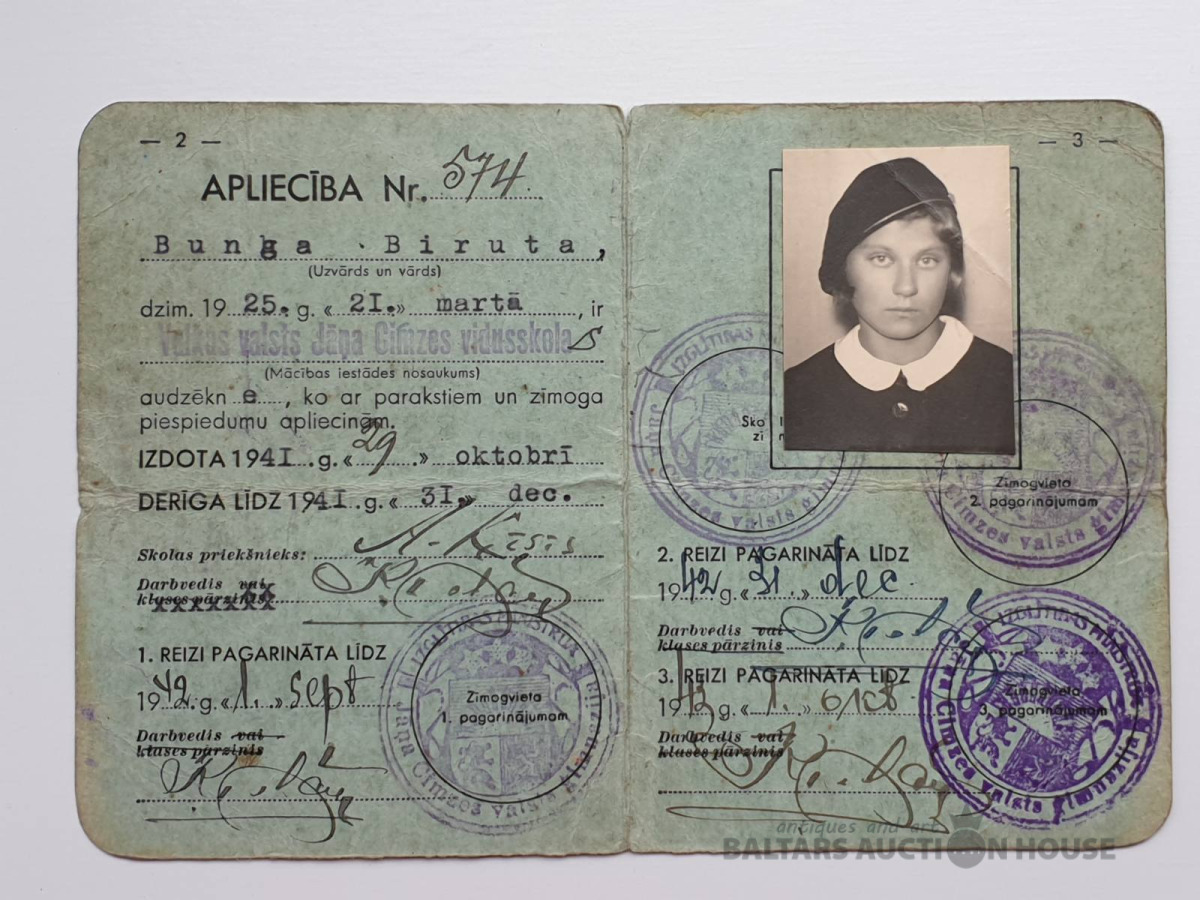 — 2 —
APLIECĪBA Nr. 574
Bunga Biruta,
(Uzvārds un vārds)
dzim. 19 25. g. « 21.» martā, ir
Valkas valsts Jāņa Cimzes vidusskola s
(Mācības iestādes nosaukums)
audzēkn e , ko ar parakstiem un zīmoga
piespiedumu apliecinām.
IZDOTA 1941 .g. « 29 .» oktobrī
DERĪGA LĪDZ 1941.g. « 31.» dec.
Skolas priekšnieks: A. Ķīsis
Darbvedis vai
klases pārzinis
1. REIZI PAGARINĀTA LĪDZ
1942.g. «1.» sept
Darbvedis vai
klases pārzinis
Zīmogvieta
1. pagarinājumam
IZGLĪTĪBAS
Jāņa Cimzes valsts ģimnāzija
— 3 —
Zīmogvieta
2. pagarinājumam
Cimzes valsts ģim
2. REIZI PAGARINĀTA LĪDZ
1942 g. «31.» dec.
Darbvedis vai
klases pārzinis
3. REIZI PAGARINĀTA LĪDZ
1943 g. «1.»
Darbvedis vai
klases pārzinis
Zīmogvieta
3. pagarinājumam
Jāņa Cimzes valsts ģimnāzija
antiques and art
BALTARS AUCTION HOUSE